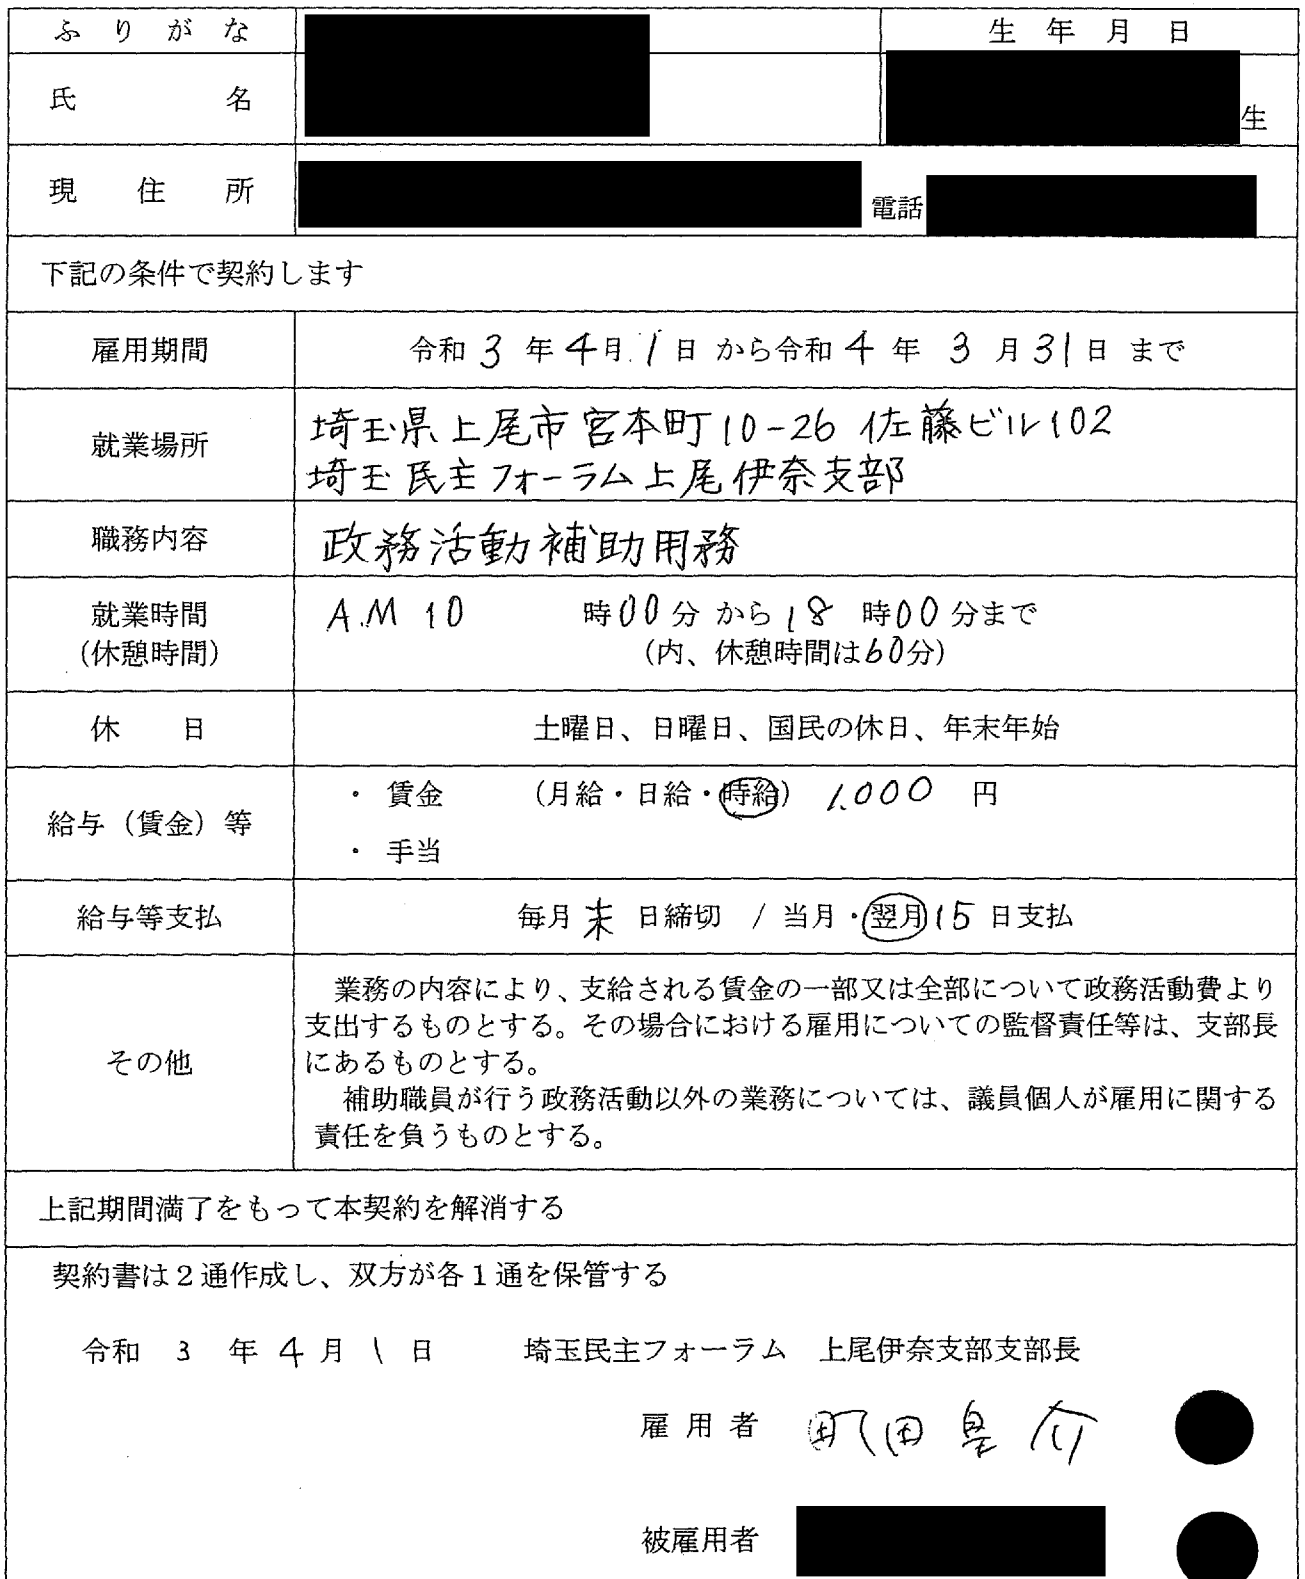 ふりがな
生年月日
氏名
生
現住所
電話
下記の条件で契約します
雇用期間
令和 3 年 4月 1 日 から令和 4 年 3 月 31日 まで
就業場所
埼玉県上尾市宮本町10-26 佐藤ビル102
埼玉民主フォーラム上尾伊奈支部
職務内容
政務活動補助用務
就業時間
(休憩時間)
A.M 10 時00分 から 18 時00分まで
(内、休憩時間は60分)
休日
土曜日、日曜日、国民の休日、年末年始
給与(賃金)等
・ 賃金 (月給・日給・時給) 1,000 円
・ 手当
給与等支払
毎月 末 日締切 / 当月・翌月 15 日支払
その他
業務の内容により、支給される賃金の一部又は全部について政務活動費より
支出するものとする。その場合における雇用についての監督責任等は、支部長
にあるものとする。
補助職員が行う政務活動以外の業務については、議員個人が雇用に関する
責任を負うものとする。
上記期間満了をもって本契約を解消する
契約書は2通作成し、双方が各1通を保管する
令和 3 年 4 月 1 日 埼玉民主フォーラム 上尾伊奈支部支部長
雇用者 町田皇介
被雇用者